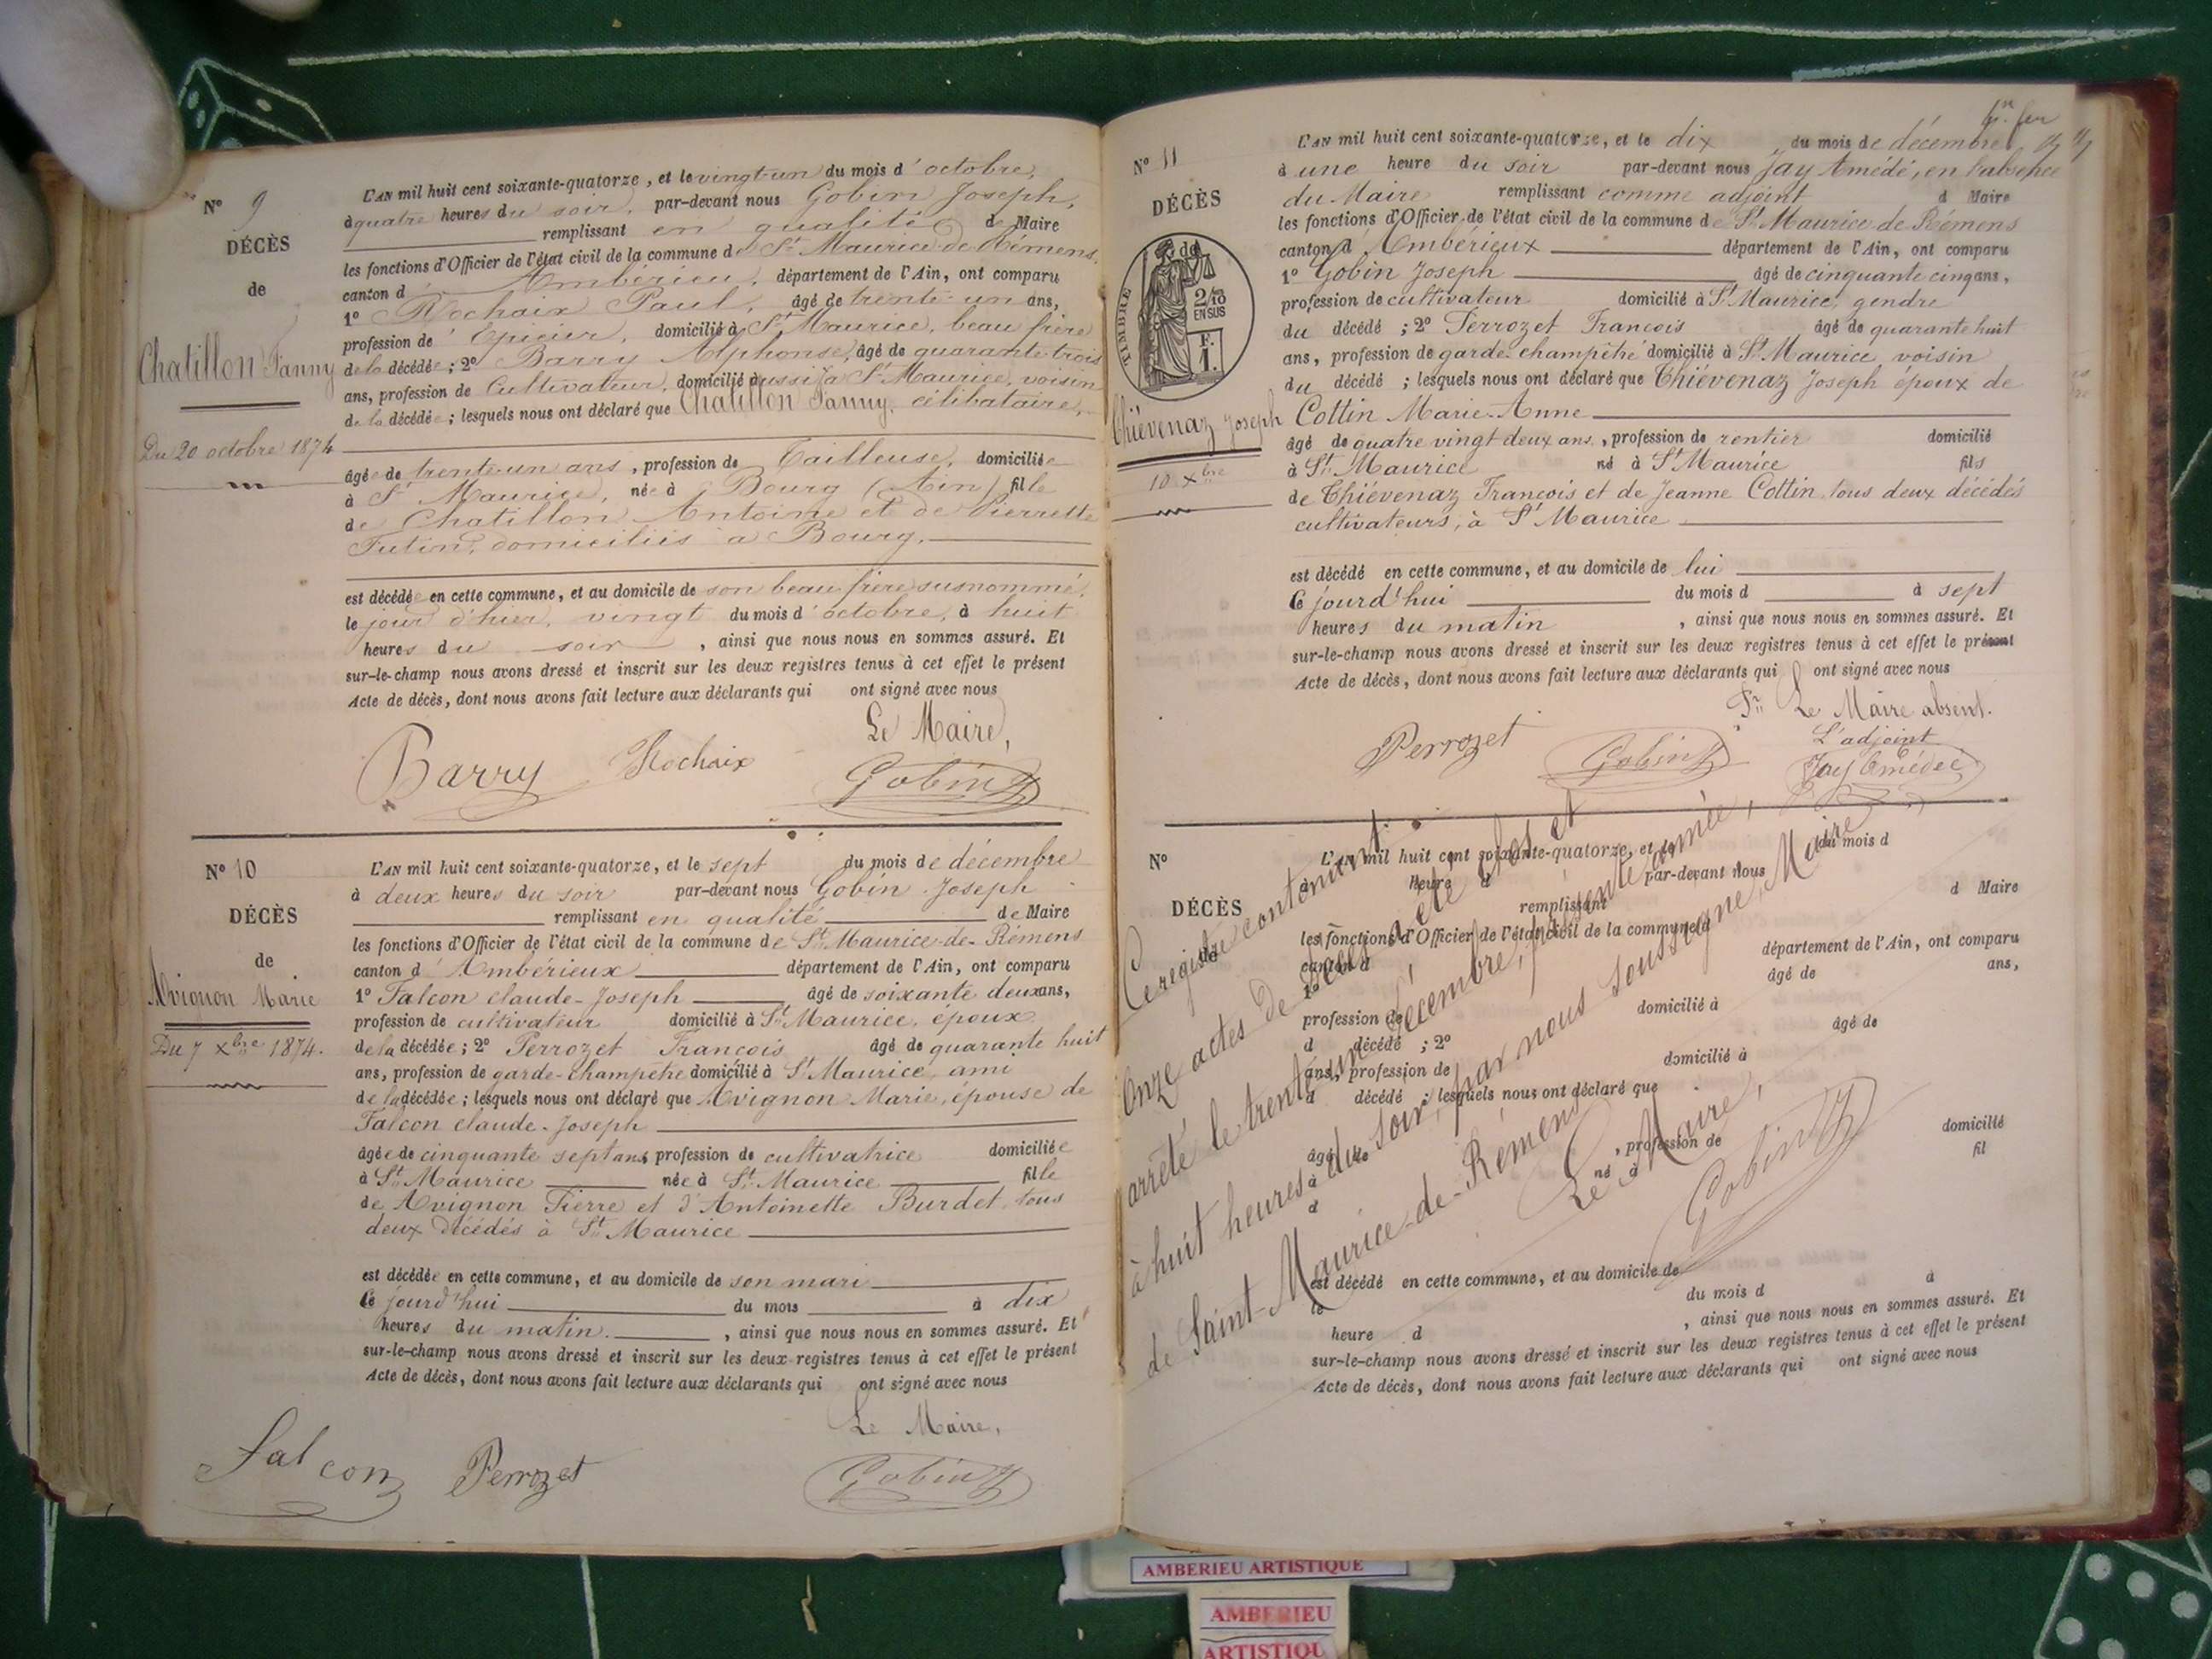 N° 9
DÉCÈS
de
Chatillon Fanny
Du 20 octobre 1874
L'AN mil huit cent soixante-quatorze, et le vingt-un du mois d'octobre,
à quatre heures du soir, par-devant nous Gobin Joseph,
remplissant en qualité de Maire
les fonctions d'Officier de l'état civil de la commune de St Maurice de Rémens,
canton d'Ambérieu, département de l'Ain, ont comparu
1° Rochaix Paul, âgé de trente-un ans,
profession de Epicier, domicilié à St Maurice, beau frère
de la décédée ; 2° Barry Alphonse, âgé de quarante-trois
ans, profession de Cultivateur, domicilié aussi à St Maurice, voisin
de la décédée ; lesquels nous ont déclaré que Chatillon Fanny, célibataire,
âgée de trente-un ans, profession de Tailleuse, domiciliée
à St Maurice, née à Bourg (Ain) fille
de Chatillon Antoine et de Pierrette
Futin, domiciliés à Bourg.
est décédée en cette commune, et au domicile de son beau frère susnommé,
le jour d'hier, vingt du mois d'octobre, à huit
heures du soir, ainsi que nous nous en sommes assuré. Et
sur-le-champ nous avons dressé et inscrit sur les deux registres tenus à cet effet le présent
Acte de décès, dont nous avons fait lecture aux déclarants qui ont signé avec nous
Le Maire,
Barry Rochaix Gobin
N° 10
DÉCÈS
de
Avignon Marie
Du 7 Xbre 1874.
L'AN mil huit cent soixante-quatorze, et le sept du mois de décembre
à deux heures du soir par-devant nous Gobin Joseph
remplissant en qualité de Maire
les fonctions d'Officier de l'état civil de la commune de St Maurice-de-Rémens
canton d'Ambérieux département de l'Ain, ont comparu
1° Falcon claude-Joseph âgé de soixante deux ans,
profession de cultivateur domicilié à St Maurice, époux
de la décédée ; 2° Perrozet François âgé de quarante huit
ans, profession de garde-champêtre domicilié à St Maurice, ami
de la décédée ; lesquels nous ont déclaré que Avignon Marie, épouse de
Falcon claude-Joseph
âgée de cinquante sept ans, profession de cultivatrice domiciliée
à St Maurice née à St Maurice fille
de Avignon Pierre et d'Antoinette Burdet, tous
deux décédés à St Maurice
est décédée en cette commune, et au domicile de son mari
Ce jourd'hui du mois à dix
heures du matin. , ainsi que nous nous en sommes assuré. Et
sur-le-champ nous avons dressé et inscrit sur les deux registres tenus à cet effet le présent
Acte de décès, dont nous avons fait lecture aux déclarants qui ont signé avec nous
Le Maire,
Falcon Perrozet Gobin
N° 11
DÉCÈS
de
TIMBRE
2/10
EN SUS
F.
1.
Thiévenaz Joseph
10 Xbre
L'AN mil huit cent soixante-quatorze, et le dix du mois de décembre
à une heure du soir par-devant nous Jay Amédé, en l'absence
du Maire remplissant comme adjoint d Maire
les fonctions d'Officier de l'état civil de la commune de St Maurice de Rémens
canton d'Ambérieux département de l'Ain, ont comparu
1° Gobin Joseph âgé de cinquante cinq ans,
profession de cultivateur domicilié à St Maurice, gendre
du décédé ; 2° Perrozet François âgé de quarante huit
ans, profession de garde-champêtre domicilié à St Maurice voisin
du décédé ; lesquels nous ont déclaré que Thiévenaz Joseph époux de
Cottin Marie-Anne
âgé de quatre vingt deux ans, profession de rentier domicilié
à St Maurice né à St Maurice fils
de Thiévenaz François et de Jeanne Cottin, tous deux décédés
cultivateurs, à St Maurice
est décédé en cette commune, et au domicile de lui
Ce jourd'hui du mois d à sept
heures du matin , ainsi que nous nous en sommes assuré. Et
sur-le-champ nous avons dressé et inscrit sur les deux registres tenus à cet effet le présent
Acte de décès, dont nous avons fait lecture aux déclarants qui ont signé avec nous
Pr Le Maire absent.
L'adjoint
Perrozet Gobin Jay Amédée
N°
DÉCÈS
de
L'AN mil huit cent soixante-quatorze, et le du mois d
à heure d par-devant nous
remplissant d Maire
les fonctions d'Officier de l'état civil de la commune d
canton d département de l'Ain, ont comparu
1° âgé de ans,
profession de domicilié à
d décédé ; 2° âgé de
ans, profession de domicilié à
d décédé ; lesquels nous ont déclaré que
âgé de , profession de domicilié
à né à fil
d
est décédé en cette commune, et au domicile de
le du mois d à
heure d , ainsi que nous nous en sommes assuré. Et
sur-le-champ nous avons dressé et inscrit sur les deux registres tenus à cet effet le présent
Acte de décès, dont nous avons fait lecture aux déclarants qui ont signé avec nous
Ce registre contenant
Onze actes de décès a été clos et
arrêté le trente un décembre, présente année,
à huit heures du soir, par nous soussigné, Maire
de Saint-Maurice-de-Rémens
Le Maire,
Gobin
AMBERIEU ARTISTIQUE
AMBERIEU
ARTISTIQU